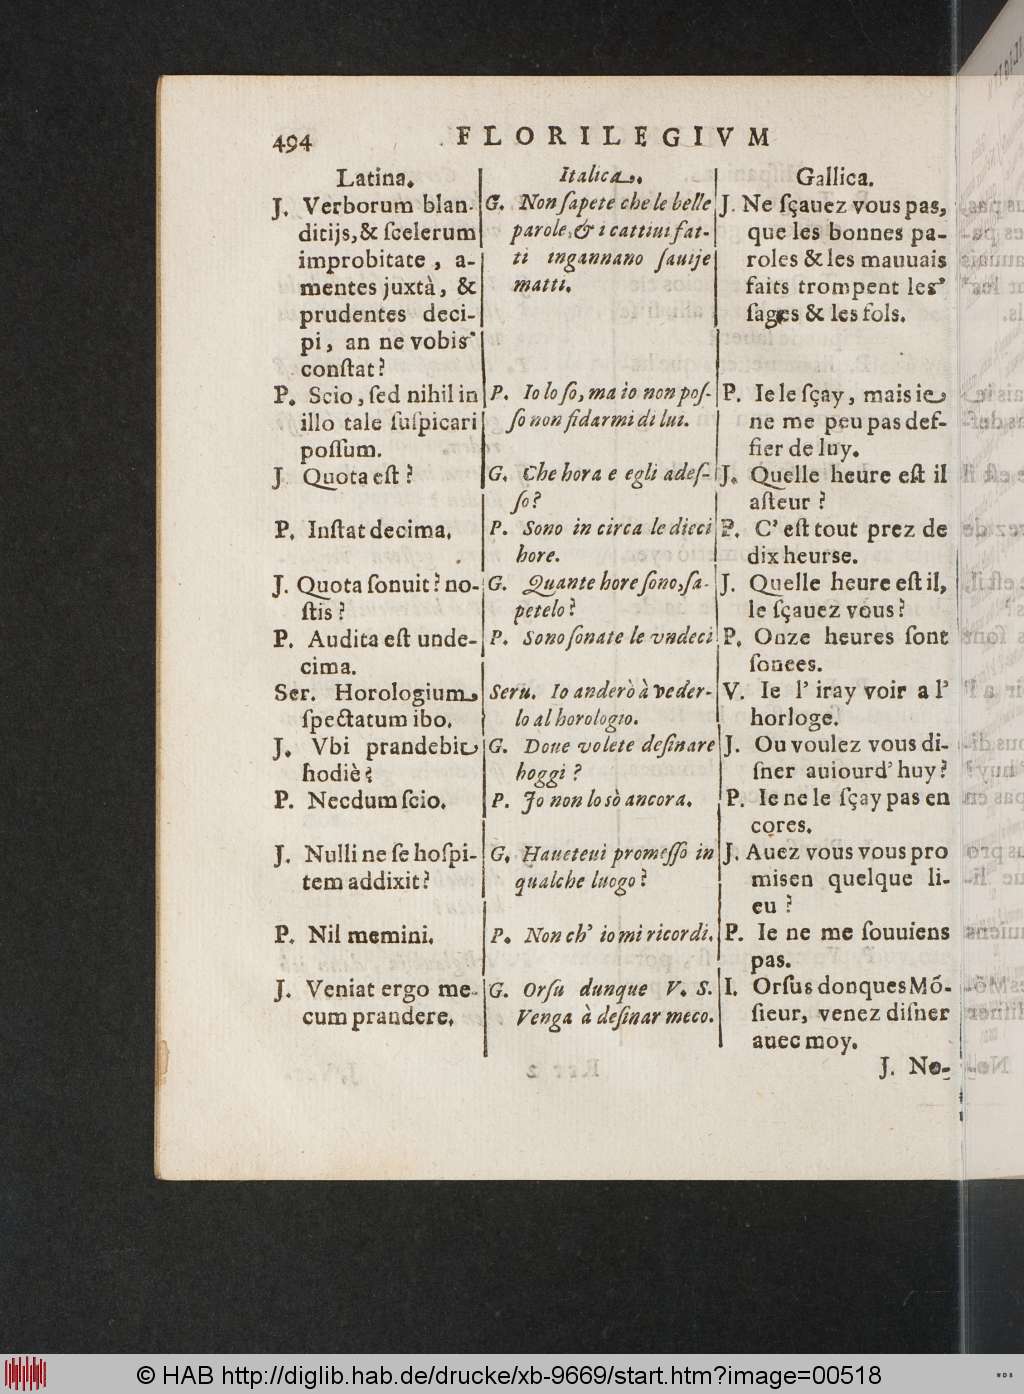 494
FLORILEGIVM
Latina.
J. Verborum blan-
ditijs, & ſcelerum
improbitate, a-
mentes juxtà, &
prudentes deci-
pi, an ne vobis
conſtat?
P. Scio, ſed nihil in
illo tale ſuſpicari
poſſum.
J Quota eſt?
P. Inſtat decima.
J. Quota ſonuit? no-
ſtis?
P. Audita eſt unde-
cima.
Ser. Horologium
ſpectatum ibo.
J. Vbi prandebit
hodiè?
P. Necdum ſcio.
J. Nulli ne ſe hoſpi-
tem addixit?
P. Nil memini.
J. Veniat ergo me-
cum prandere.
Italica.
G. Non ſapete che le belle
parole, & i cattiui fat-
ti ingannano ſauije
matti.
P. Io lo ſo, ma io non poſ-
ſo non fidarmi di lui.
G. Che hora e egli adeſ-
ſo?
P. Sono in circa le dieci
hore.
G. Quante hore ſono, ſa-
petelo?
P. Sono ſonate le vndeci
Seru. Io anderò à veder-
lo al horologio.
G. Doue volete deſinare
hoggi?
P. Jo non lo sò ancora.
G. Haueteui promeſſo in
qualche luogo?
P. Non ch' io mi ricordi.
G. Orſu dunque V. S.
Venga à deſinar meco.
Gallica.
J. Ne ſçauez vous pas,
que les bonnes pa-
roles & les mauuais
faits trompent les
ſages & les fols.
P. Ie le ſçay, mais ie
ne me peu pas def-
fier de luy.
J. Quelle heure eſt il
aſteur?
P. C' eſt tout prez de
dix heurse.
J. Quelle heure eſt il,
le ſçauez vous?
P. Onze heures ſont
ſonees.
V. Ie l' iray voir a l'
horloge.
J. Ou voulez vous di-
ſner auiourd' huy?
P. Ie ne le ſçay pas en
cores.
J. Auez vous vous pro
misen quelque li-
eu?
P. Ie ne me ſouuiens
pas.
I. Orſus donques Mõ-
ſieur, venez diſner
auec moy.
J. Ne-
© HAB http://diglib.hab.de/drucke/xb-9669/start.htm?image=00518